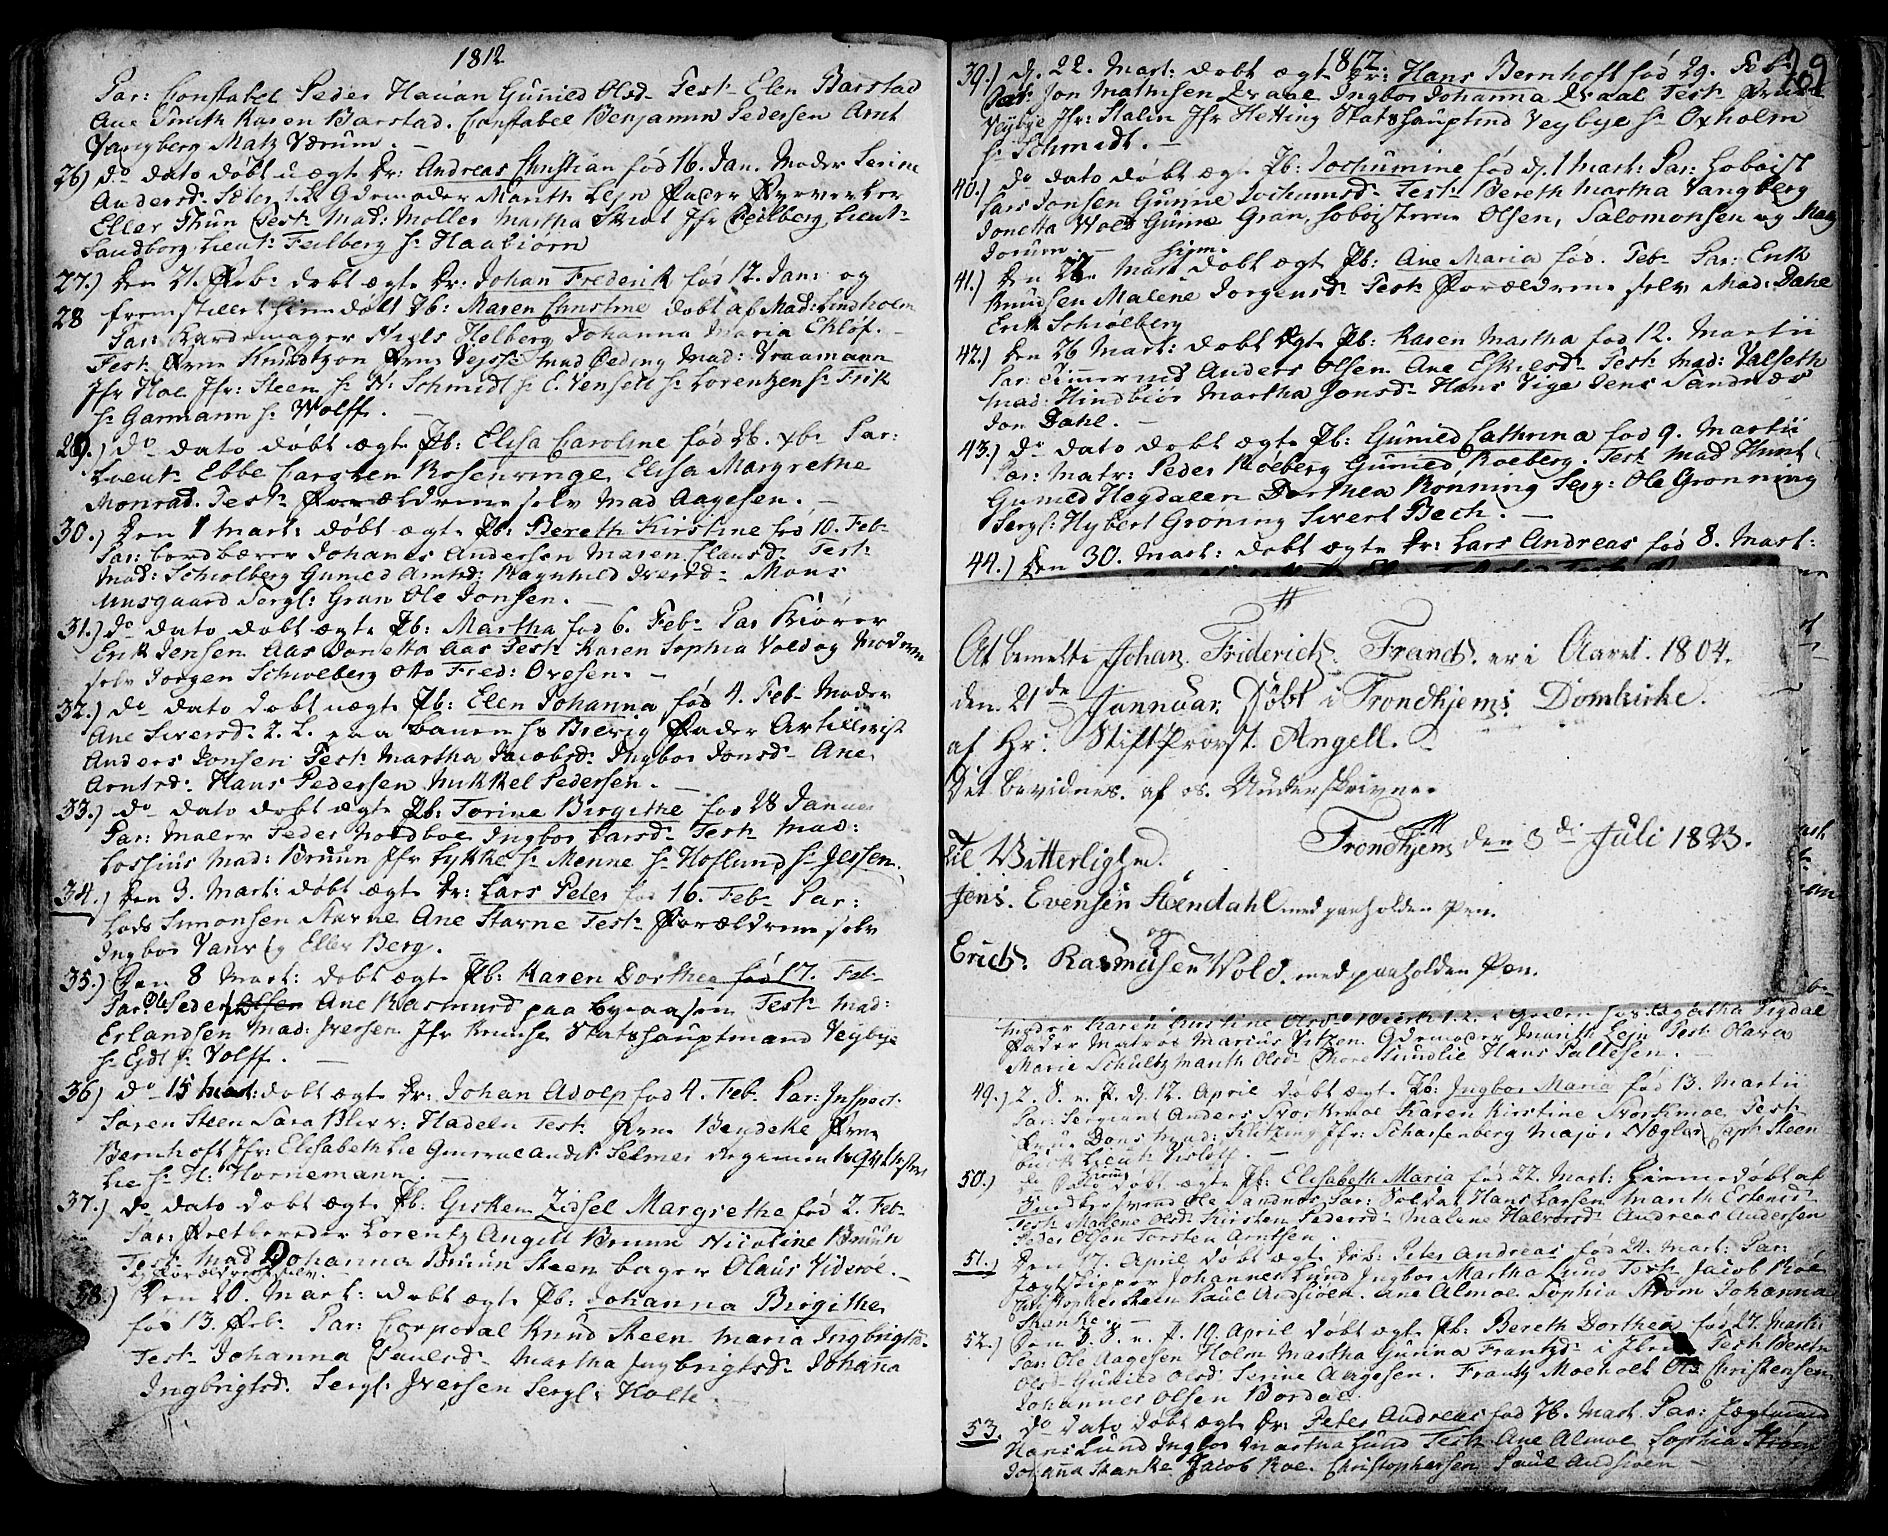 1812
Par: Constabel Peder Havan Gunild Olsd- Test- Elen Barstad
Ane Smith Karen Barstad. Constabel Benjamin Pedersen Arnt
Vangberg Matz Værum. -
26) do dato døbt uægte Dr: Andreas Christian fød 16. Jan. Moder Serine
Andersd. Gdemoder Marith Lejn Fader Hyrverker
Eller Thun Test: Mad: Møller Martha Jfr Feilberg Lieut:
Sandborg Lieut: Feilberg Hr Haabiørn
27.) Den 21. Feb: døbt ægte Dr: Johan Frederik fød 12. Jan: og
28 fremstillet hiemdøbt Pb: Maren Christine døbt af Mad: Lindholm
Par: Niels Helberg Johanna Maria Ekløf. -
Test: Frue Knudtzon Frue Vejste Mad Øeding Mad: Vraamann
Jfr Hoe Jfr: Steen Hr N: Schmidt Hr C. Jensen Hr Lorentzen Hr Frik
Hr Garmann Hr Wolff. -
29.) do dato døbt ægte Pb: Elisa Caroline fød 26. xbr Par:
Lieut: Ebbe Carsten Rosenvinge Elisa Margrethe
Monrad. Test: Forældrene selv Mad Aagesen. -
30.) Den 1 Mart: døbt ægte Pb: Bereth Kirstine fød 10. Feb-
Par: Johanes Andersen Maren Clausd- Test:
Mad: Schiølberg Gunild Arntsd: Ragnhild Iversd- Mons
Musgaard Sergt: Gran Ole Jonsen. -
31.) do dato døbt ægte Pb: Martha fød 6. Feb- Par Kiører
Erik Jensen Aas Donetta Aas Test: Karen Sophia Vold og Moderen
selv Jørgen Schiøelberg Otto Fred: Ovesen. -
32.) do dato døbt uægte Pb: Elen Johanna fød 4. Feb- Moder
Ane Siversd- 2. L. paa Hr Brevig Fader Artillerist
Anders Jonsen Test: Martha Jacobsd- Ingbor Jonsd- Ane
Arntsd: Hans Pedersen Mikkel Pedersen. -
33.) do dato døbt ægte Pb: Torine Birgithe fød 28 Januar
Par: Maler Peder Nordboe Ingbor Larsd- Test: Mad:
Lossius Mad: Bruun Jfr Lykke Hr Menne Hr Hoflund Hr Jessen.
34.) Den 3. Mart: døbt ægte Dr: Lars Peter fød 16. Feb- Par:
Lods Simonsen Starne Ane Starne Test- Forældrene selv
Ingbor Eller Berg.
35.) Den 8 Mart: døbt ægte Pb: Karen Dorthea fød 17. Feb-
Par: Ole Peder Olsen Ane Rasmusd paa Byeaasen Test: Mad:
Erlandsen Mad: Iversen Jfr Kruse Statshauptmand Veybye
Hr Egdt Hr Volff. -
36) do 15 Mart: døbt ægte Dr: Johan Adolp fød 4. Feb- Par: Inspect:
Søren Steen Sara Bleu v: Hadeln Test: Frue Bendeke Frue
Bernhoft Jfr: Elisabeth Lie General Selmer
Lie Hr H: Hornemann. -
37.) do dato døbt ægte Pb: Girken Zidsel Margrethe fød 2. Feb-
Par: Lorentz Angell Bruun Nicoline Bruun
Test: Mad Johanna Bruun Steen bager Olaus Viderøe. -
og Forældrene selv.
38.) Den 20. Mart: døbt ægte Pb: Johanna Birgithe
fød 13. Feb- Par: Corporal Knud Steen Maria Ingbrigtsd.
Test- Johanna Paulsd- Martha Ingbrigtsd- Johana
Ingbrigtsd. Sergt: Iversen Sergt: Holte. -
1812.
39.) d. 22. Mart: døbt ægte Dr: Hans Bernhoft fød 29. Feb:
Par: Jon Mathisen Qvaal Ingbor Johanna Qvaal Test Frue
Veybye Jfr: Stalin Jfr Hetting Statshauptmd Veybye Hr Oxholm
Hr Schmidt. -
40.) do dato døbt ægte Pb: Jochumine fød d. 1 Mart: Par: Hoboist
Lars Jonsen Gunne Jochumsd- Test- Bereth Martha Vangberg
Jonetta Wold Gunne Gran, Hoboisterne Olsen, Salomonsen og Matz
Jorum. -
41.) Den 22. Mart: døbt ægt Pb: Ane Maria fød. Feb- Par: Erik
Knudsen Malene Jorgensd- Test: Forældrene selv Mad: Dahl
Erik Schiølberg
42.) Den 26 Mart: døbt ægte Pb: Karen Martha fød 12. Martii
Par: Anders Olsen Ane Eskilsd- Test: Mad: Valseth
Mad: Hindbior Martha Jonsd- Hans Vige Jens Sandnæs
Jon Dahl. -
43.) do dato døbt ægte Pb: Gunild Cathrina fød 9. Martii
Par: Matr: Peder Roeberg Gunild Roeberg. Test Mad Hunt
Gunild Hegdalen Dorthea Rønning Serg: Ole Grønning
Sergt: Hybert Grøning Sivert Bech. -
44.) Den 30. Mart: døbt ægte Dr: Lars Andreas fød 8. Mart:
At bemelte Johan Friderich Frands. er i Aaret 1804.
den 21de Jannuar Døbt i Trondhjems Domkirke.
af Hr: StiftProvst Angell. -
Det bevidnes. af os. Underskrivne.
Trondhjem den 3di Juli 1823.
til Vitterlighed.
Jens. Evensen Steendahl med paaholden Pen.
og
Erich. Rasmusen Wold. med paaholden Pen.
Moder Karen Kirstine Olsd Agatha Tigdal
Fader Matros Marius Vitzen Gdemoder Marith Lejn Test: Olava
Marie Schultz Marith Olsd- Thore Sundlie Hans Pallesen.
49.) 2. S. e. P. d. 12. April døbt ægte Pb: Ingbor Maria fød 13. Martii
Par: Sergeant Anders Storkmoe Karen Kirstine Storkmoe Test:
Frue Dons Mad: Klitzing Jfr: Scharfenberg Major Nægler Capt Steen
Lieut: -
50.) do dato døbt ægte Pb: Elisabeth Maria fød 22. Mart: hiemmedøbt af
Ole Sandnøs Par: Soldat Hans Larsen Marith Estensd.
Test: Malene Olsd- Kirsten Pedersd- Malene Halvorsd- Andreas Andersen
Peder Olsen Torsten Arntsen.
51.) Den 17. April døbt ægte Dr: Peter Andreas fød 24. Mart: Par:
Jægtskipper Johannes Lund Ingbor Martha Lund Test: Jacob Roe
Christopher Steen Paul Andsioen. Ane Almoe Sophia Strøm Johanna
Stanke. -
52.) Den 3. S. e. P. 19. April døbt ægte Pb: Bereth Dorthea fød 27. Martii
Par: Ole Aagesen Holm Martha Gurina Frantzd- i Ihlen Test: Bereth
Olsd- Gunild Olsd- Serine Aagesen. Frantz Moeholt Ole Christensen
Johannes Olsen Bordal.
53. do dato døbt ægte Dr: Peter Andreas fød 26. Mart. Par: Jægtmand
Hans Lund Ingbor Martha Lund Test- Ane Almoe Sophia Strøm
Johanna Stanke Jacob Roe. Christophersen Paul Andsioen -